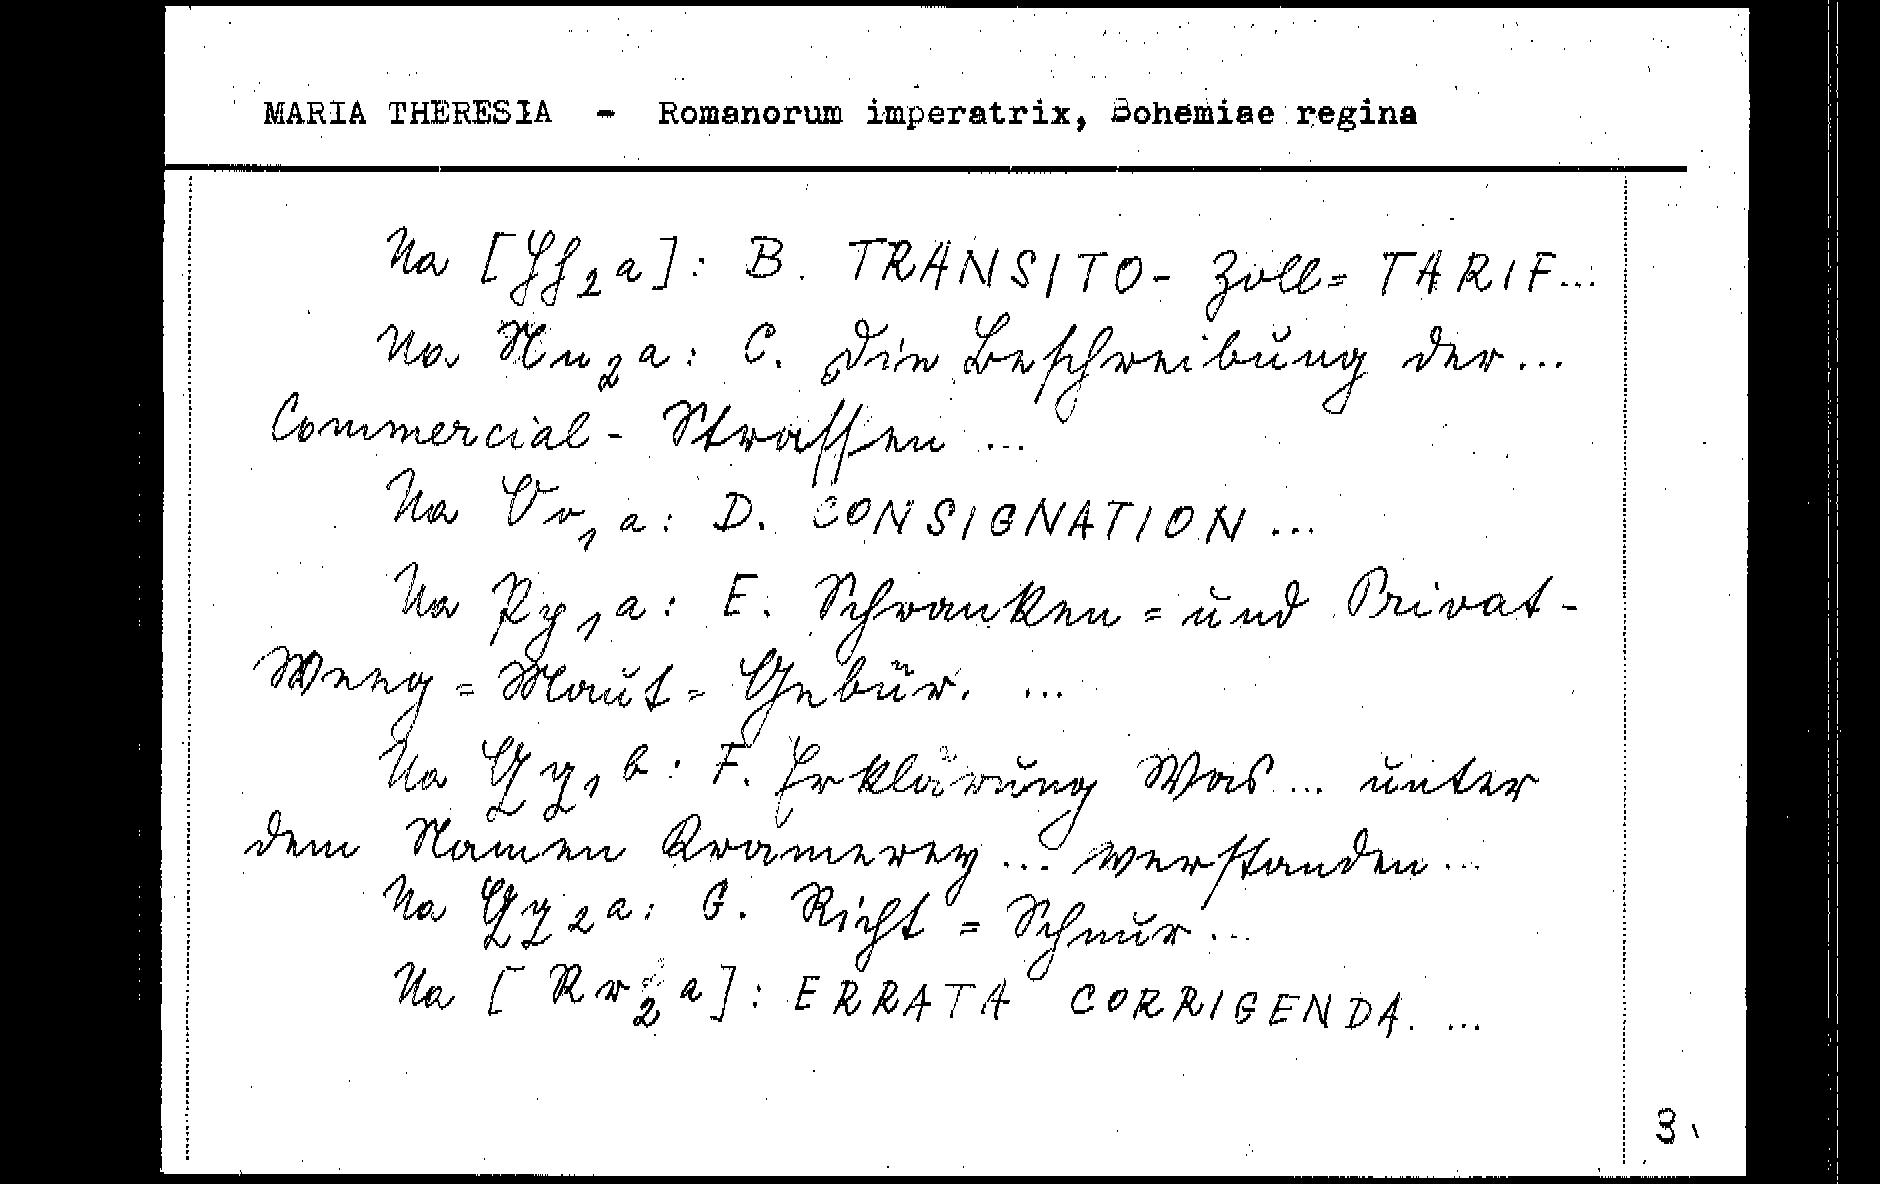 MARIA THERESIA - Romanorum imperatrix, Bohemiae regina
Na [Hh2a]: B. TRANSITO- Zoll= TARIF...
Na Nn2a: C. Die Beschreibung der...
Commercial- Strassen ...
Na Oo1a: D. CONSIGNATION ...
Na Pp1a: E. Schranken= und Privat-
Weeg= Maut= Gebür. ...
Na Qq1b: F. Erklärung Was... unter
dem Namen Kramerey... verstanden...
Na Qq2a: G. Richt= Schnur...
Na [Rr2a]: ERRATA CORRIGENDA. ...
3.